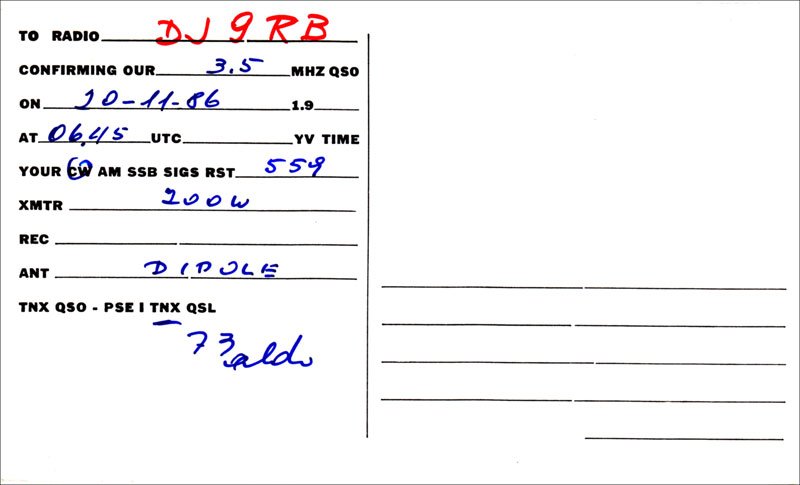 TO RADIO DJ9RB
CONFIRMING OUR 3.5 MHZ QSO
ON 20-11-86 1.9
AT 06.45 UTC YV TIME
YOUR CW AM SSB SIGS RST 559
XMTR 200W
REC
ANT DIPOLE
TNX QSO - PSE I TNX QSL
73 aldo